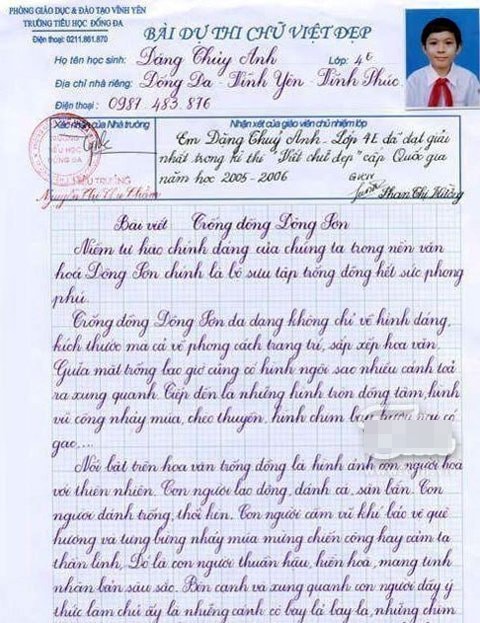 PHÒNG GIÁO DỤC & ĐÀO TẠO VĨNH YÊN
TRƯỜNG TIỂU HỌC ĐỐNG ĐA
Điện thoại: 0211.861.870
BÀI DỰ THI CHỮ VIỆT ĐẸP
Họ tên học sinh: Đặng Thủy Anh Lớp: 4E
Địa chỉ nhà riêng: Đống Đa - Vĩnh Yên - Vĩnh Phúc.
Điện thoại: 0987 483 876
Xác nhận của Nhà trường
Nhận xét của giáo viên chủ nhiệm lớp
Em Đặng Thuỷ Anh - Lớp 4E đã đạt giải
nhất trong kì thi "Viết chữ đẹp" cấp Quốc gia
năm học 2005 - 2006
GVCN
HIỆU TRƯỞNG
Phan Thị Hường
Bài viết Trống đồng Đông Sơn
Niềm tự hào chính đáng của chúng ta trong nền văn
hoá Đông Sơn chính là bộ sưu tập trống đồng hết sức phong
phú.
Trống đồng Đông Sơn đa dạng không chỉ về hình dáng,
kích thước mà cả về phong cách trang trí, sắp xếp hoa văn.
Giữa mặt trống bao giờ cũng có hình ngôi sao nhiều cánh toả
ra xung quanh. Tiếp đến là những hình tròn đồng tâm, hình
vũ công nhảy múa, chèo thuyền, hình chim bay, hươu nai có
gạc....
Nổi bật trên hoa văn trống đồng là hình ảnh con người hoà
với thiên nhiên. Con người lao động, đánh cá, săn bắn. Con
người đánh trống, thổi kèn. Con người cầm vũ khí bảo vệ quê
hương và tưng bừng nhảy múa mừng chiến công hay cảm tạ
thần linh, Đó là con người thuần hậu, hiền hoà, mang tính
nhân bản sâu sắc. Bên cạnh và xung quanh con người đầy ý
thức làm chủ ấy là những cánh cò bay lả bay la, những chim